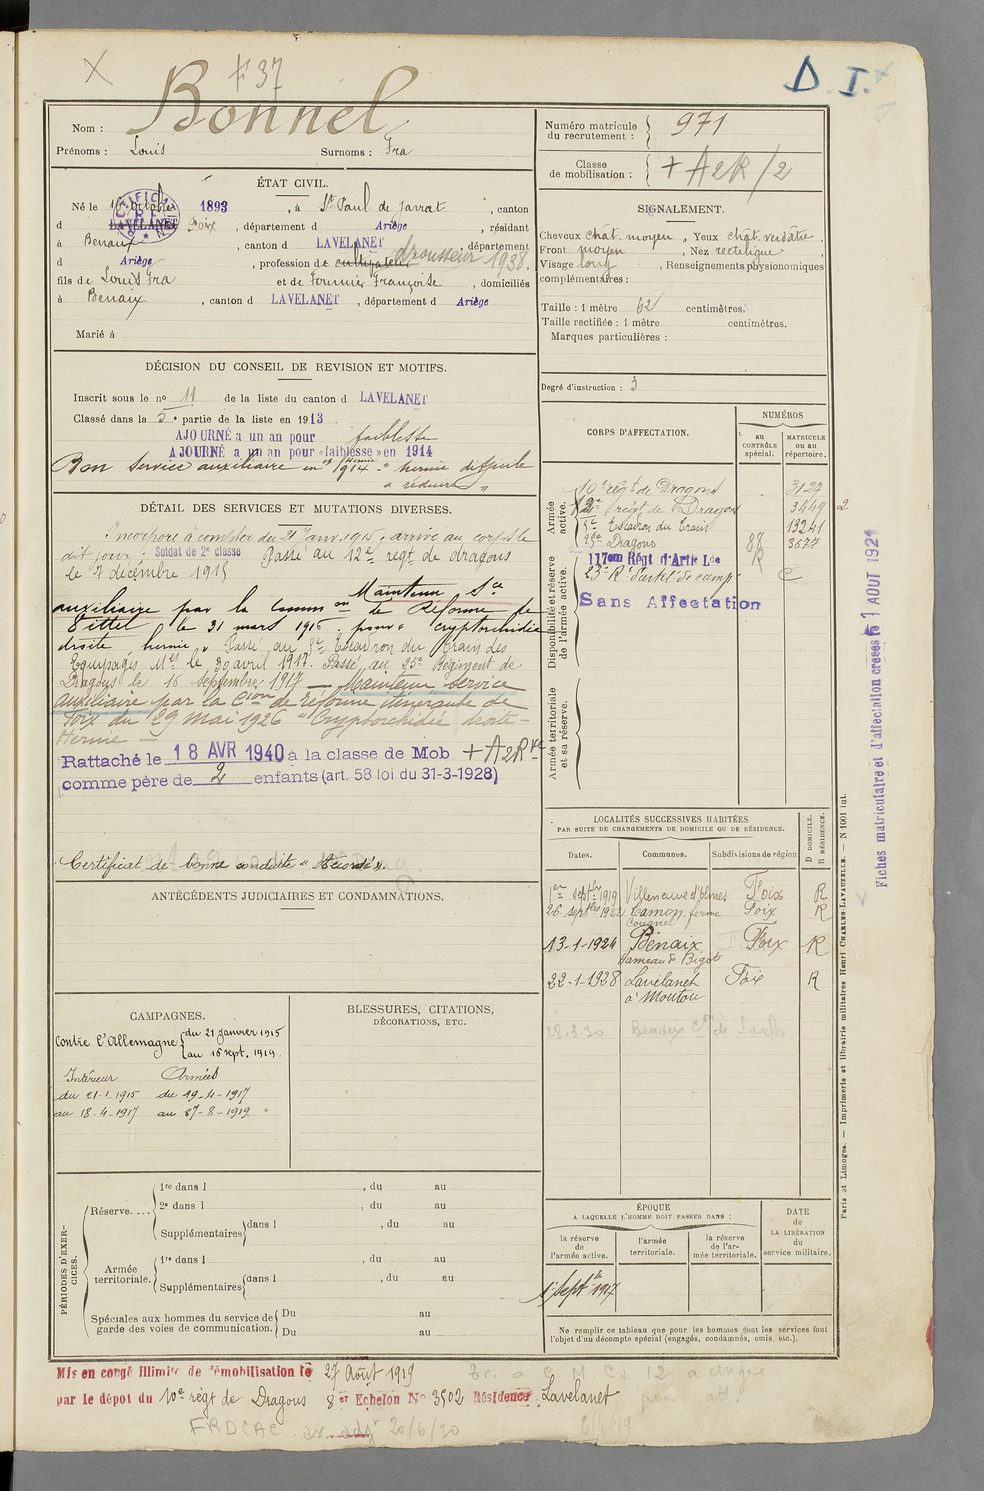 F 37
D. I.
Bonnel
Nom :
Prénoms : Louis Surnoms : Fra
Numéro matricule du recrutement : 971
Classe de mobilisation : + A2R/2
ÉTAT CIVIL.
Né le 16 octobre 1893, à St Paul de Jarrat, canton
d LAVELANET Foix, département d Ariège, résidant
à Benaix, canton d LAVELANET, département
d Ariège, profession de cultivateur drousseur 1938.
fils de Louis Fra et de Fournier Françoise, domiciliés
à Benaix, canton d LAVELANET, département d Ariège
Marié à
SIGNALEMENT.
Cheveux chat. moyen, Yeux chat. verdâtre,
Front moyen, Nez rectiligne,
Visage long, Renseignements physionomiques
complémentaires :
Taille : 1 mètre 62 centimètres.
Taille rectifiée : 1 mètre centimètres.
Marques particulières :
Degré d'instruction : 3
DÉCISION DU CONSEIL DE REVISION ET MOTIFS.
Inscrit sous le no 11 de la liste du canton d LAVELANET
Classé dans la 5e partie de la liste en 1913
AJOURNÉ a un an pour faiblesse
AJOURNÉ a un an pour «faiblesse» en 1914
Bon service auxiliaire en 1914 "hernie difficile
à réduire"
DÉTAIL DES SERVICES ET MUTATIONS DIVERSES.
Incorporé à compter du 21 janv. 1915, arrivé au corps le
dit jour. Soldat de 2e classe Passé au 12e régt. de dragons
le 7 décembre 1915
Maintenu Sce
auxiliaire par la Common de Réforme de
Vittel le 31 mars 1916. pour "cryptorchidie
droite, hernie" Passé au 5e Escadron du Train des
Equipages Mres le 30 avril 1917. Passé au 25e Régiment de
Dragons le 16 septembre 1917 — Maintenu service
auxiliaire par la Cion de réforme itinérante de
Foix du 29 mai 1926 "Cryptorchidie droite -
Hernie —
Rattaché le 18 AVR 1940 à la classe de Mob + A2R
comme père de 2 enfants (art. 58 loi du 31-3-1928)
Certificat de bonne conduite "Accordé".
CORPS D'AFFECTATION.
NUMÉROS
au CONTRÔLE spécial.
MATRICULE ou au répertoire.
Armée active.
10e régt de Dragons 3127
12e régt de Dragons 3449 2
5e Escadron du Train 13241
25e Dragons 3677
Disponibilité et réserve de l'armée active.
117em Régt d'Artie Lde 88 R
Sans Affectation
Armée territoriale et sa réserve.
Fiches matriculaire et d'affectation creées le 1 AOUT 1921
ANTÉCÉDENTS JUDICIAIRES ET CONDAMNATIONS.
LOCALITÉS SUCCESSIVES HABITÉES
PAR SUITE DE CHANGEMENTS DE DOMICILE OU DE RÉSIDENCE.
D DOMICILE. R RÉSIDENCE.
Dates. Communes. Subdivisions de région
1er septbre 1919 Villeneuve d'olmes Foix R
26 septbre 1922 Camon ferme Foix R
13-1-1924 Bénaix Foix R
hameau de Bigot
22-1-1928 Lavelanet Foix R
à Moutou
CAMPAGNES.
Contre l'Allemagne du 21 janvier 1915
au 16 sept. 1919.
Intérieur Armées
du 21-1-1915 du 19-4-1917
au 18-4-1917 au 27-8-1919
BLESSURES, CITATIONS,
DÉCORATIONS, ETC.
PÉRIODES D'EXERCICES.
Réserve....
1re dans l , du au
2e dans l , du au
Supplémentaires dans l , du au
Armée territoriale.
1re dans l , du au
Supplémentaires dans l , du au
Spéciales aux hommes du service de garde des voies de communication.
Du au
Du au
ÉPOQUE
A LAQUELLE L'HOMME DOIT PASSER DANS :
la réserve de l'armée active.
l'armée territoriale.
la réserve de l'armée territoriale.
DATE de LA LIBÉRATION du service militaire.
1 Septbre 1917
Ne remplir ce tableau que pour les hommes dont les services font
l'objet d'un décompte spécial (engagés, condamnés, omis, etc.).
Paris et Limoges. — Imprimerie et librairie militaires Henri CHARLES-LAVAUZELLE. — N 1001 int.
Mis en congé illimité de démobilisation le 27 Août 1919
par le dépôt du 10e régt de Dragons 8er Echelon No 3502 Résidence Lavelanet
20/6/20